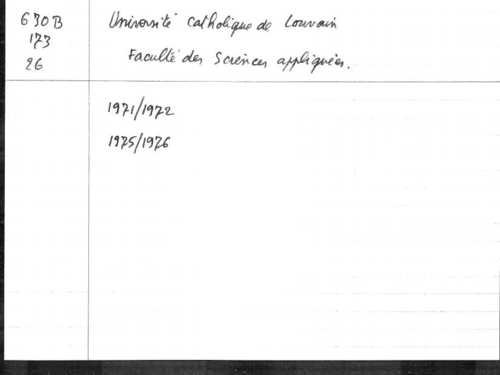 630B
173
26
Université catholique de Louvain
Faculté des Sciences appliquées.
1971/1972
1975/1976